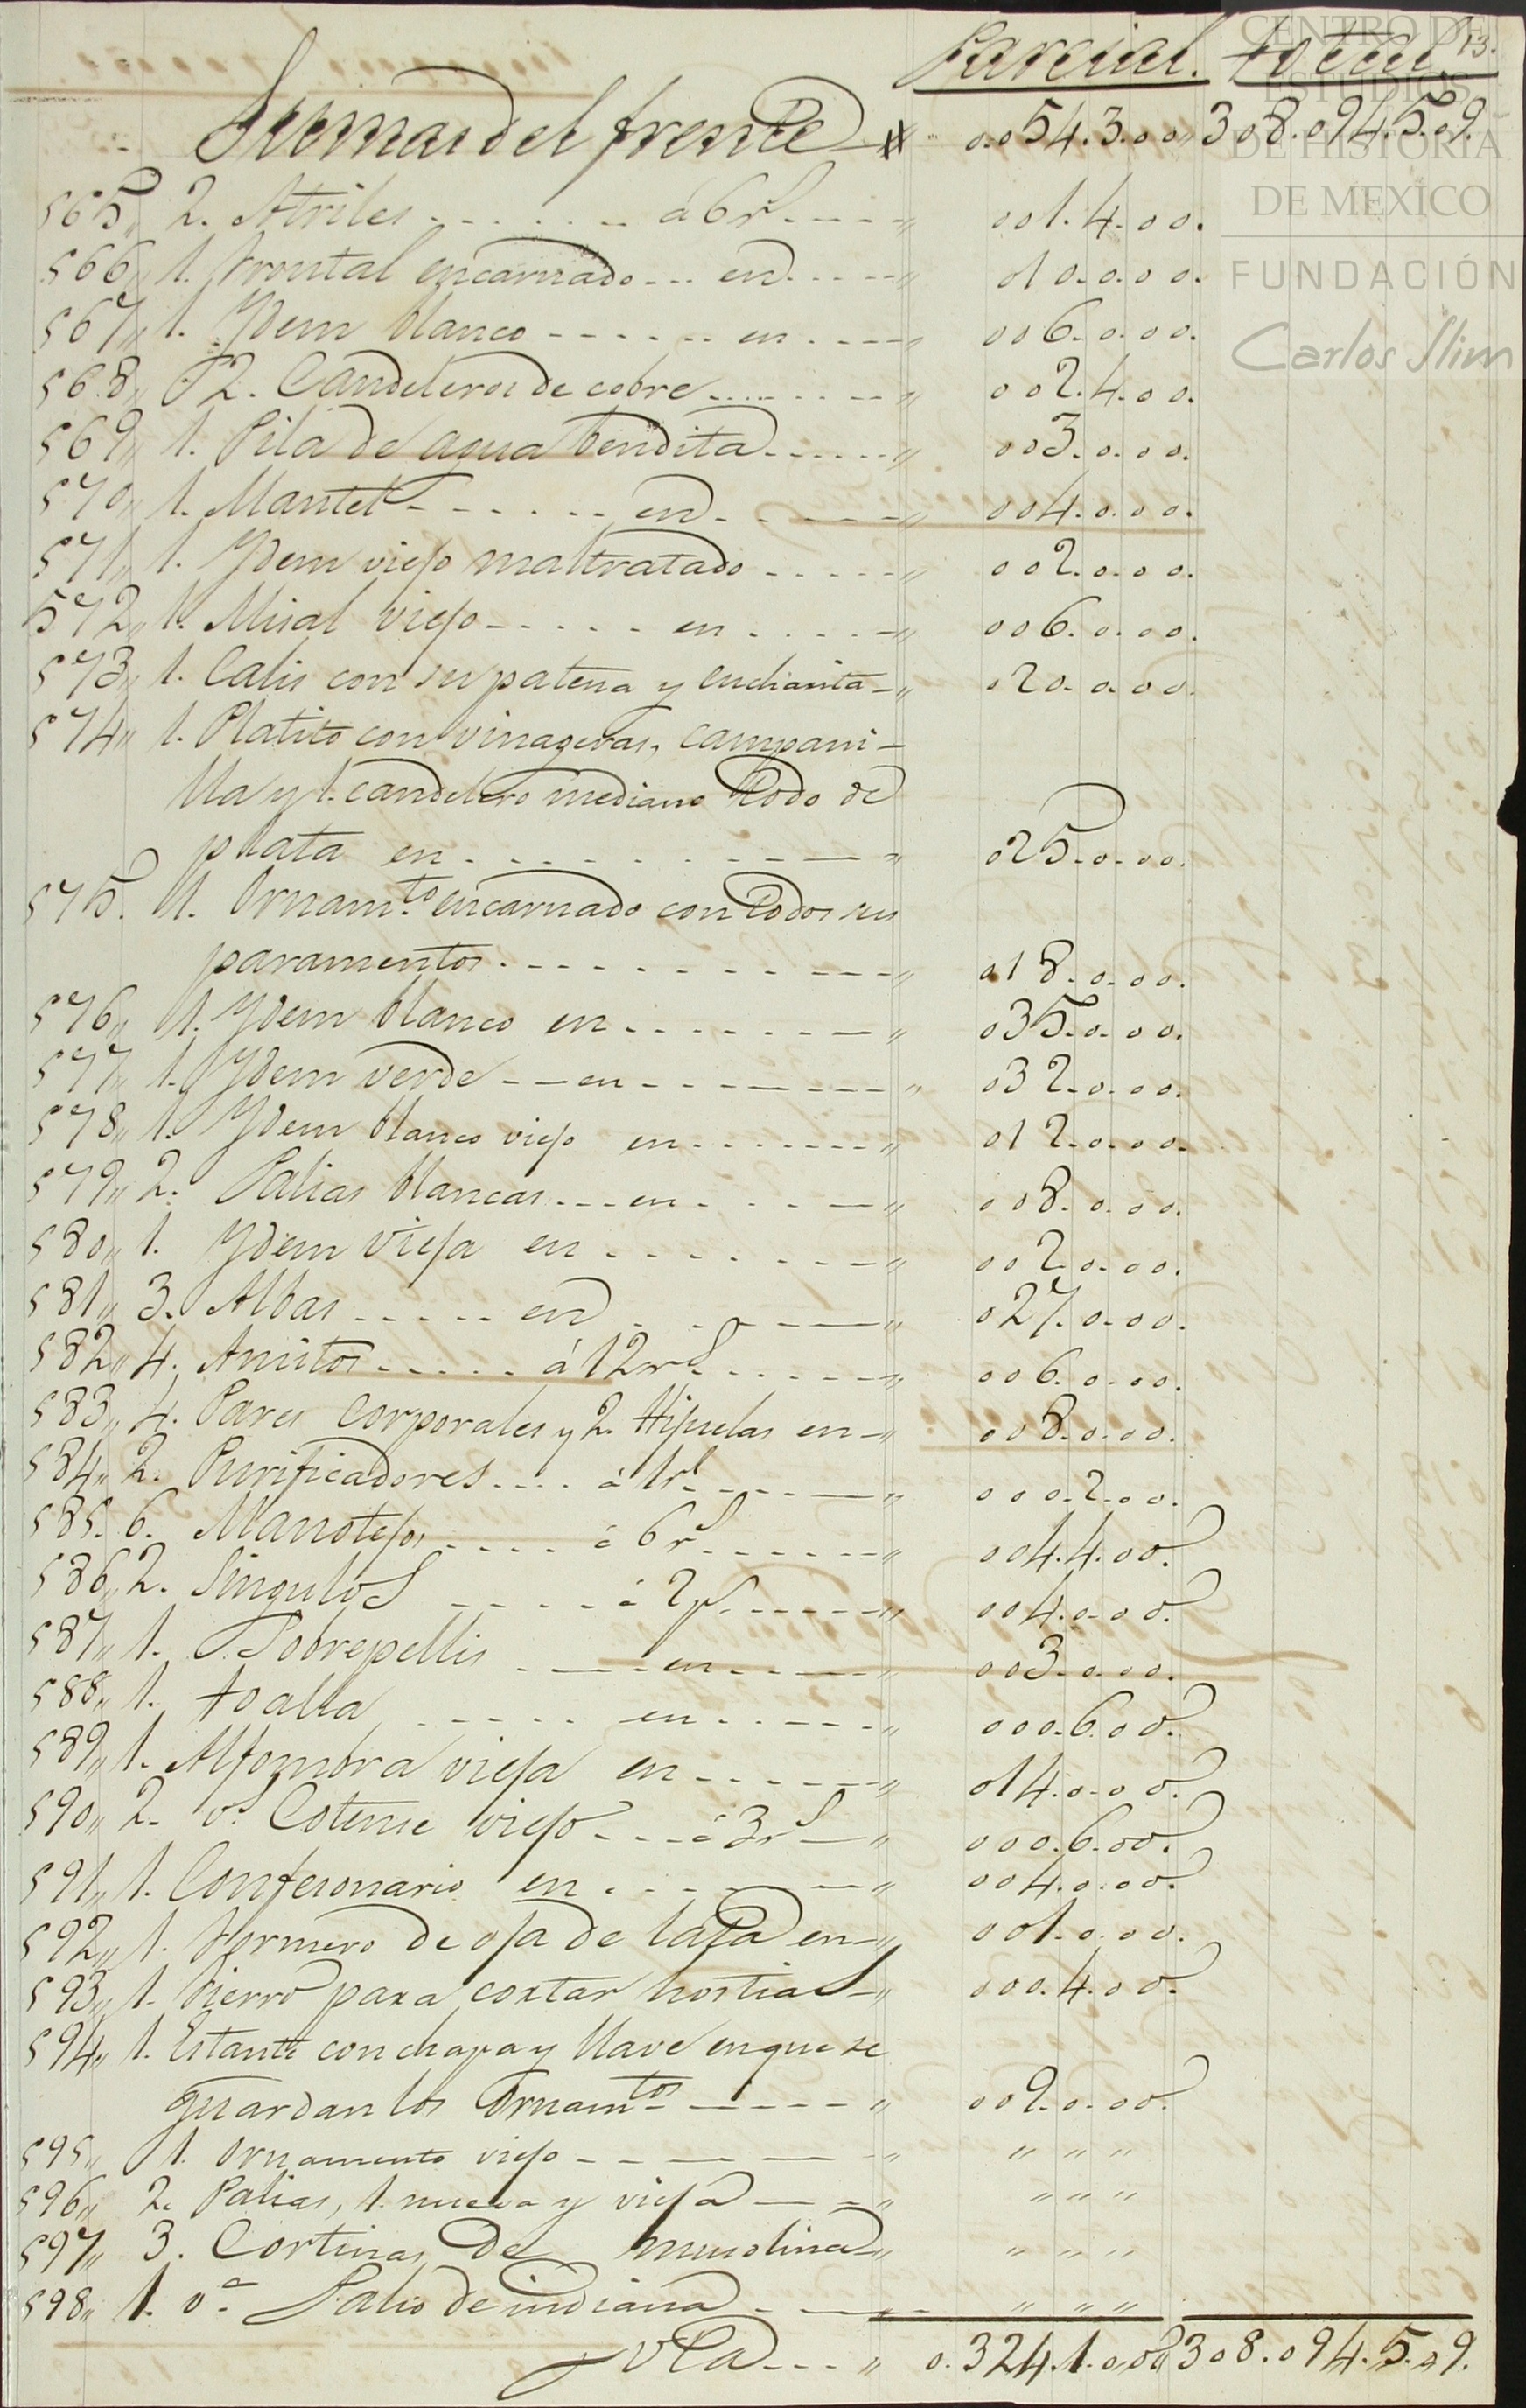 Parcial. total 13.
Sumas del frente 0.054.3.00 308.094.5.09.
565,, 2. Atriles á 6 rs ,, 001.4.00.
566,, 1. Frontal encarnado en ,, 010.0.00.
567,, 1. Ydem blanco en ,, 006.0.00.
568,, 2. Candeleros de cobre ,, 002.4.00.
569,, 1. Pila de agua bendita ,, 003.0.00.
570,, 1. Mantel en ,, 004.0.00.
571,, 1. Ydem viejo maltratado ,, 002.0.00.
572,, 1. Misal viejo en ,, 006.0.00.
573,, 1. Calis con su patena y cucharita ,, 020.0.00.
574,, 1. Platito con vinageras, campani-
lla y 1. candelero mediano todo de
plata en ,, 025.0.00.
575. 1. Ornamto. encarnado con todos sus
paramentos ,, 018.0.00.
576,, 1. Ydem blanco en ,, 035.0.00.
577,, 1. Ydem verde en ,, 032.0.00.
578,, 1. Ydem blanco viejo en ,, 012.0.00.
579,, 2. Palias blancas en ,, 008.0.00.
580,, 1. Ydem vieja en ,, 002.0.00.
581,, 3. Albas en ,, 027.0.00.
582,, 4. Amitos á 12 rs ,, 006.0.00.
583,, 4. Pares corporales y 2. Hijuelas en ,, 008.0.00.
584,, 2. Purificadores á 1 rl ,, 000.2.00.
585. 6. Manotejos á 6 rs ,, 004.4.00.
586,, 2. Singulos á 2 ps ,, 004.0.00.
587,, 1. Sobrepellis en ,, 003.0.00.
588,, 1. toalla en ,, 000.6.00.
589,, 1. Alfombra vieja en ,, 014.0.00.
590,, 2. vs. Cotense viejo á 3 rs ,, 000.6.00.
591,, 1. Confesonario en ,, 004.0.00.
592,, 1. Hormero de oja de lata en ,, 001.0.00.
593,, 1. Fierro para cortar hostias ,, 000.4.00.
594,, 1. Estante con chapa y llave en que se
guardan los Ornamtos ,, 009.0.00.
595,, 1. Ornamento viejo ,, ,, ,, ,,
596,, 2. Palias, 1. nueva y vieja ,, ,, ,, ,,
597,, 3. Cortinas de muselina ,, ,, ,, ,,
598,, 1. va. Palio de indiana ,, ,, ,,
vta ,, 0.324.1.00 308.094.5.09.
CENTRO DE
ESTUDIOS
DE HISTORIA
DE MEXICO
FUNDACIÓN
Carlos Slim